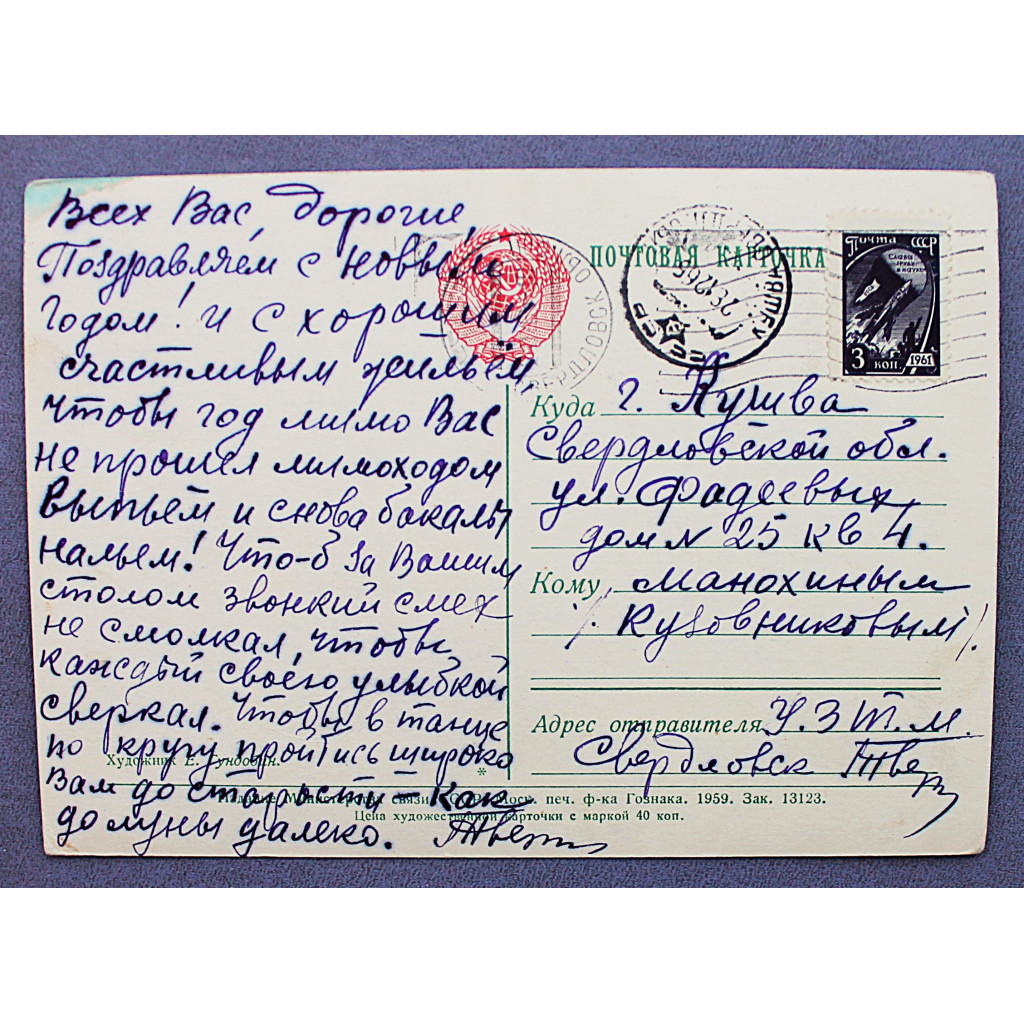 Всех Вас, Дорогие
Поздравляем с новым
годом! и с хорошим
счастливым жильём
Чтобы год мимо Вас
не прошел мимоходом
Выпьем и снова бокалы
нальем! Что-б за Вашим
столом звонкий смех
не смолкал, чтобы
каждый своею улыбкой
сверкал. Чтобы в танце
по кругу пройтись широко
Вам до старости – как
до луны далеко.
Художник Е. Гундобин.
ПОЧТОВАЯ КАРТОЧКА
Почта СССР
Слава
труду
и науке
3 коп. 1961
СВЕРДЛОВСК ОБЛ
Куда г. Кушва
Свердловской обл.
ул. Фадеевых,
дом N 25 кв 4.
Кому Манохиным
/. Кузовниковым /.
Адрес отправителя У.З.Т.М.
Свердловск
*
Издание Министерства связи СССР. Моск. печ. ф-ка Гознака. 1959. Зак. 13123.
Цена художественной карточки с маркой 40 коп.